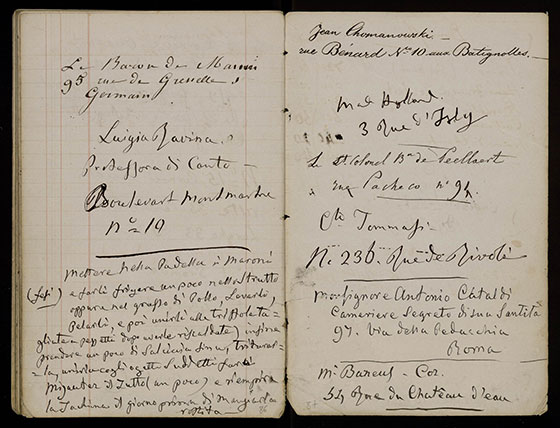 Le Baron de
95 rue de Grenelle s
Germain
Luigia Bavina.
Professora di Canto —
Boulevart Montmartre
n° = 19
Mettere nella Padella i Maroni
(fasi) e farli friggere un poco nello Strutto
oppure nel grasso di Pollo, Levarli,
Pelarli, e poi unirli alla triffolata =
gliata a pezzetti dopo averle riscaldate) infine
prendere un poco di Salciccia fina, triturar =
= la, unirla cogli oggetti Suddetti farli
il Tutto (un poco) e riempire
la Tachina il giorno prima di mangiarla
rostita —
Jean Chomanowski —
rue Bénard Nro 10. aux Batignolles. —
Made Holland.
3 Rue d'Isly
Le Lt. Colonel Bon de Peellaert
rue Pacheco n° 94.
Cte Tommasi
N. 236. Rue de Rivoli
Monsignore Antonio Cataldi
Cameriere Segreto di sua Santità
97. Via della Pedacchia
Roma
Mr Baneus — Cor.
54 Rue du Chateau d'eau